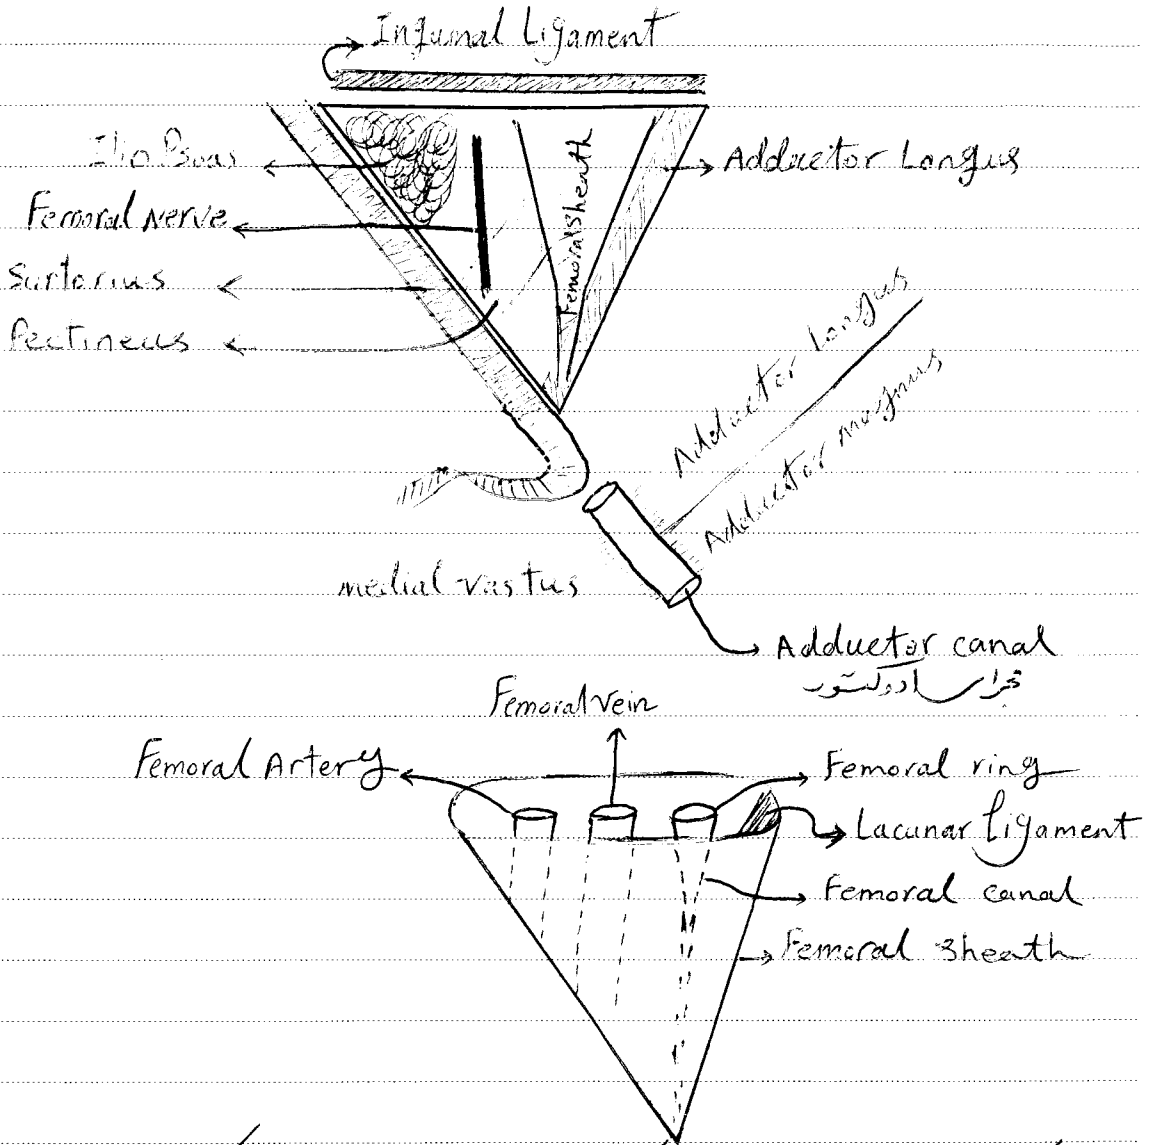 Inguinal Ligament
Ilio Psoas
Adductor Longus
Femoral Nerve
Femoral Sheath
Sartorius
Pectineus
Adductor Longus
Adductor magnus
medial vastus
Adductor canal
مجرای ادوکتور
Femoral vein
Femoral Artery
Femoral ring
Lacunar Ligament
Femoral canal
Femoral Sheath